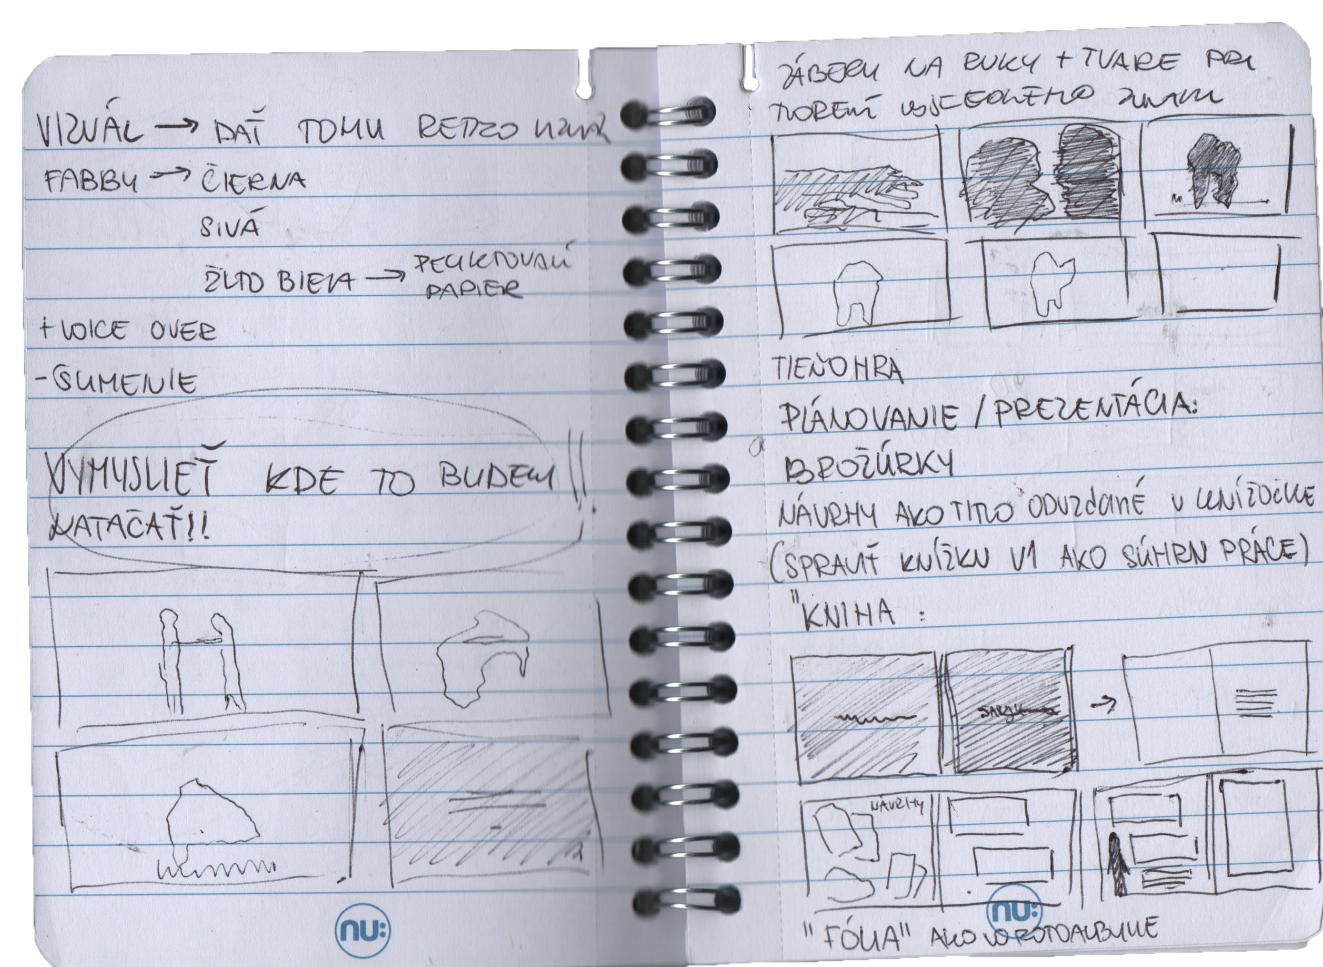 VIZUÁL → DAŤ TOMU RETRO
FARBY → ČIERNA
SIVÁ
ŽLTO BIELA → RECYKLOVANÝ
PAPIER
+ VOICE OVER
- ŠUMENIE
VYMYSLIEŤ KDE TO BUDEM !!
NATÁČAŤ!!
nu:
ZÁBERY NA RUKY + TVÁRE PRI
TVORENÍ VÝSLEDNÉHO
TIEŇOHRA
PLÁNOVANIE / PREZENTÁCIA:
BROŽÚRKY
NÁVRHY AKO TIETO ODVZDANÉ V KNIŽOČKE
(SPRAVIŤ KNIŽKU V1 AKO SÚHRN PRÁCE)
"KNIHA :
→
NÁVRHY
nu:
"FÓLIA" AKO VO FOTOALBUME